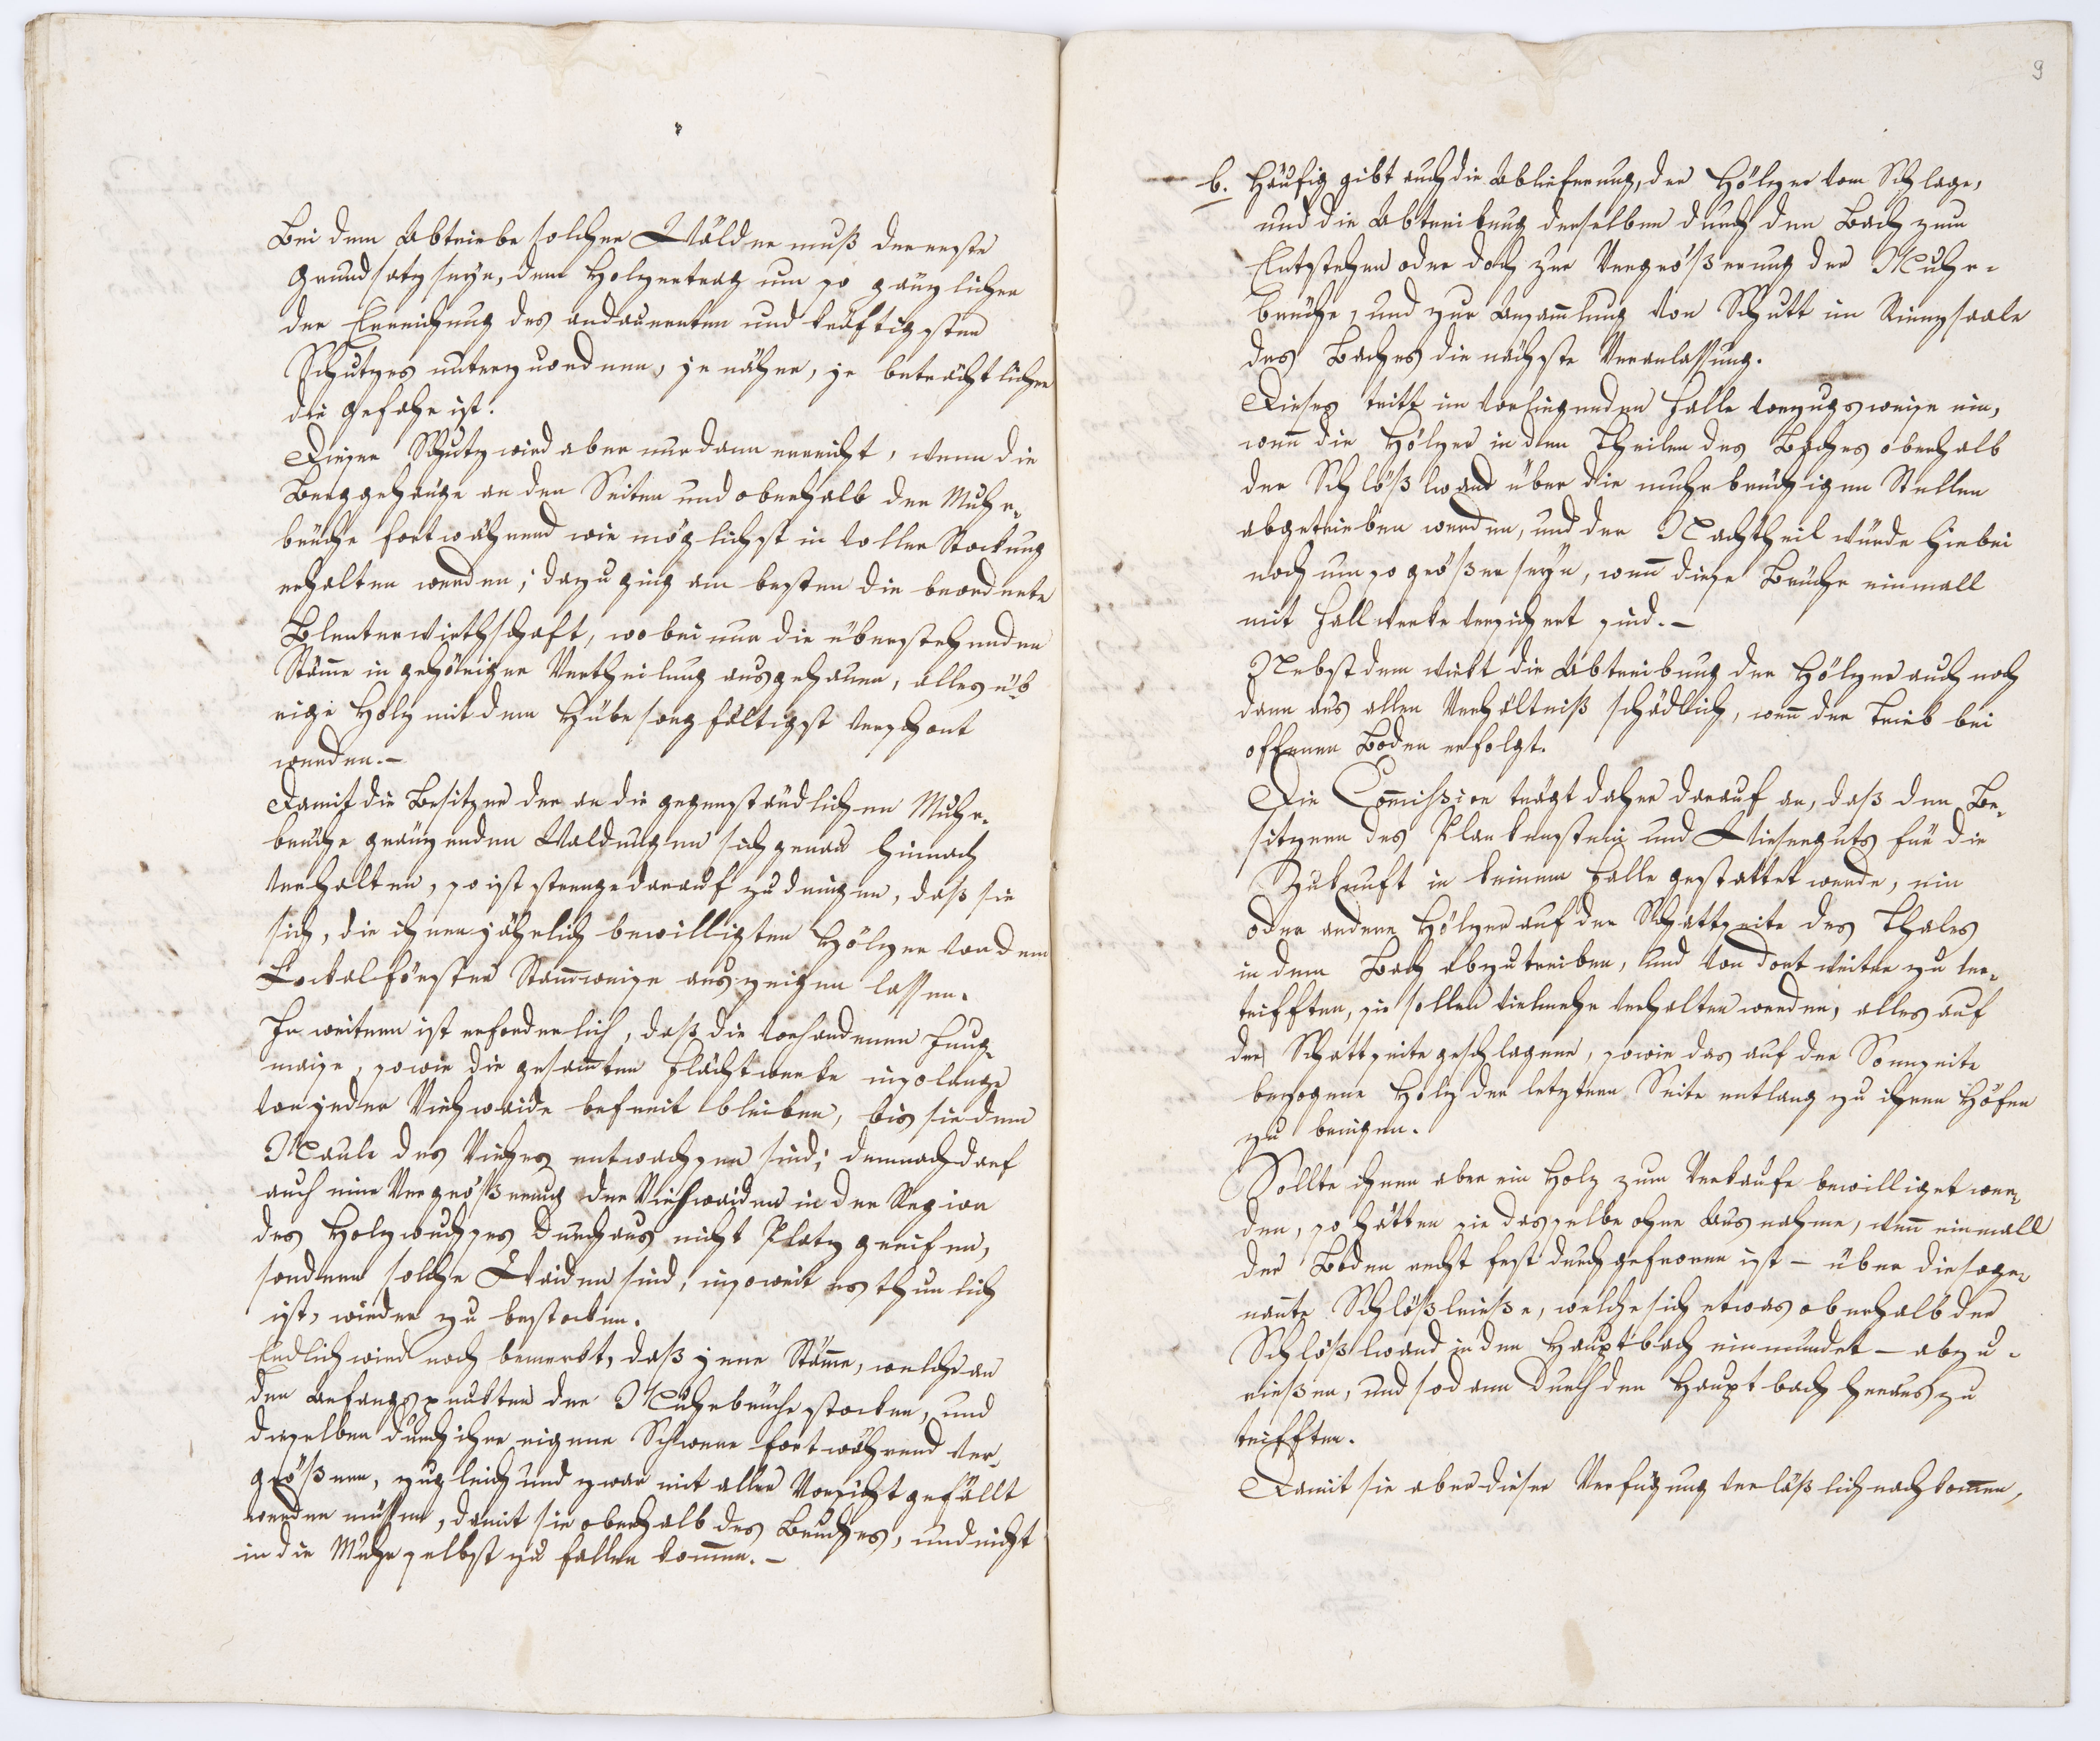 Bei dem Abtriebe solcher Wälder muß der erste
Grundsatz seyn, den Holzertrag um so gänzlicher
der Erreichung des andauernten und kräftigsten
Schutzes unterzuordnen, je näher, je beträchtlicher
die Gefahr ist.
Dieser Schutz wird aber nur dann erreicht, wenn die
Berggehänge an den Seiten und oberhalb der Muhr-
brüche fortwährend wie möglichst in voller Stockung
erhalten werden; dazu ging am besten die beordnete
Blenterwirthschaft, wobei nur die überstehenden
Stäm̅e in gehöriger Vertheilung ausgehauen, alles üb
rige Holz mit dem Hübe sorgfältigst verschont
werden.-
Damit die Besitzer der an die gegenständlichen Muhr-
brüche gränzenden Waldungen sich genau hienach
verhalten, so ist strenge darauf zu dringen, daß sie
sich, die ihnen jährlich bewilligten Hölzer von dem
Lockalförster Stam̅weise auszeigen lassen.
In weitern ist erforderlich, daß die vorhandenen Jung-
maise, sowie die gesam̅ten Flächtwerke insolange
von jeder Viehwaide befreit bleiben, bis sie dem
Maule des Viehes entwachsen sind; demnach darf
auch eine Vergrößerung der Viehwaiden in der Region
des Holzwuchses durchaus nicht Platz greifen,
sondern solche Waiden sind, insoweit es thunlich
ist, wieder zu bestocken.
Endlich wird noch bemerkt, daß jene Stäm̅e, welche an
den Anfangspunkten der Muhrbrüche stocken, und
dieselben durch ihre eigene Schwere fortwährend ver-
größern, zugleich und zwar mit aller Vorsicht gefällt
werden müssen, damit sie oberhalb des Bruches, und nicht
in die Muhr selbst zu fallen kom̅en.-
9
b. Häufig gibt auch die Ablieferung, der Hölzer vom Schlage,
und die Abtreibung derselben durch den Bach zum
Entstehen oder doch zur Vergrößerung der Muhr-
brüche, und zur Ansam̅lung von Schutt im Rinnsaale
des Baches die nächste Veranlassung.
Dieses tritt im vorliegenden Falle vorzugsweise ein,
wen̅ die Hölzer in den Theilen des Baches oberhalb
der Schlößlwand über die muhrbrüchigen Stellen
abgetrieben werden, und der Nachtheil würde hiebei
noch um so größer seyn, wen̅ diese Brüche einmall
mit Fallwerke versichert sind.-
Nebstdem wirkt die Abtreibung der Hölzer auch noch
dann aus allen Verhältniß schädlich, wen̅ der Trieb bei
offenen Boden erfolgt.
Die Com̅ißion trägt daher darauf an, daß den Be-
sitzern des Plankenstein und Wieserguts für die
Zukunft in keinem Falle gestattet werde, ein
oder andere Hölzer auf der Schattseite des Thales
in dem Bach abzutreiben, und von dort weiter zu ver-
trifften, sie sollen vielmehr verhalten werden, alles auf
der Schattseite geschlagene, sowie das auf der Sonnseite
bezogene Holz der letztern Seite entlang zu ihren Höfen
zu bringen.
Sollte ihnen aber ein Holz zum Verkaufe bewilliget wer-
den, so hätten sie dasselbe ohne Ausnahme, wen̅ einmall
der Boden recht fest durchgefroren ist - über die soge-
nan̅te Schlößlrieße, welche sich etwas oberhalb der
Schlößlwand in den Hauptbach einmündet - abzu-
rießen, und sodann durch den Hauptbach herauszu
trifften.
Damit sie aber dieser Verfügung verläßlich nachkom̅en,